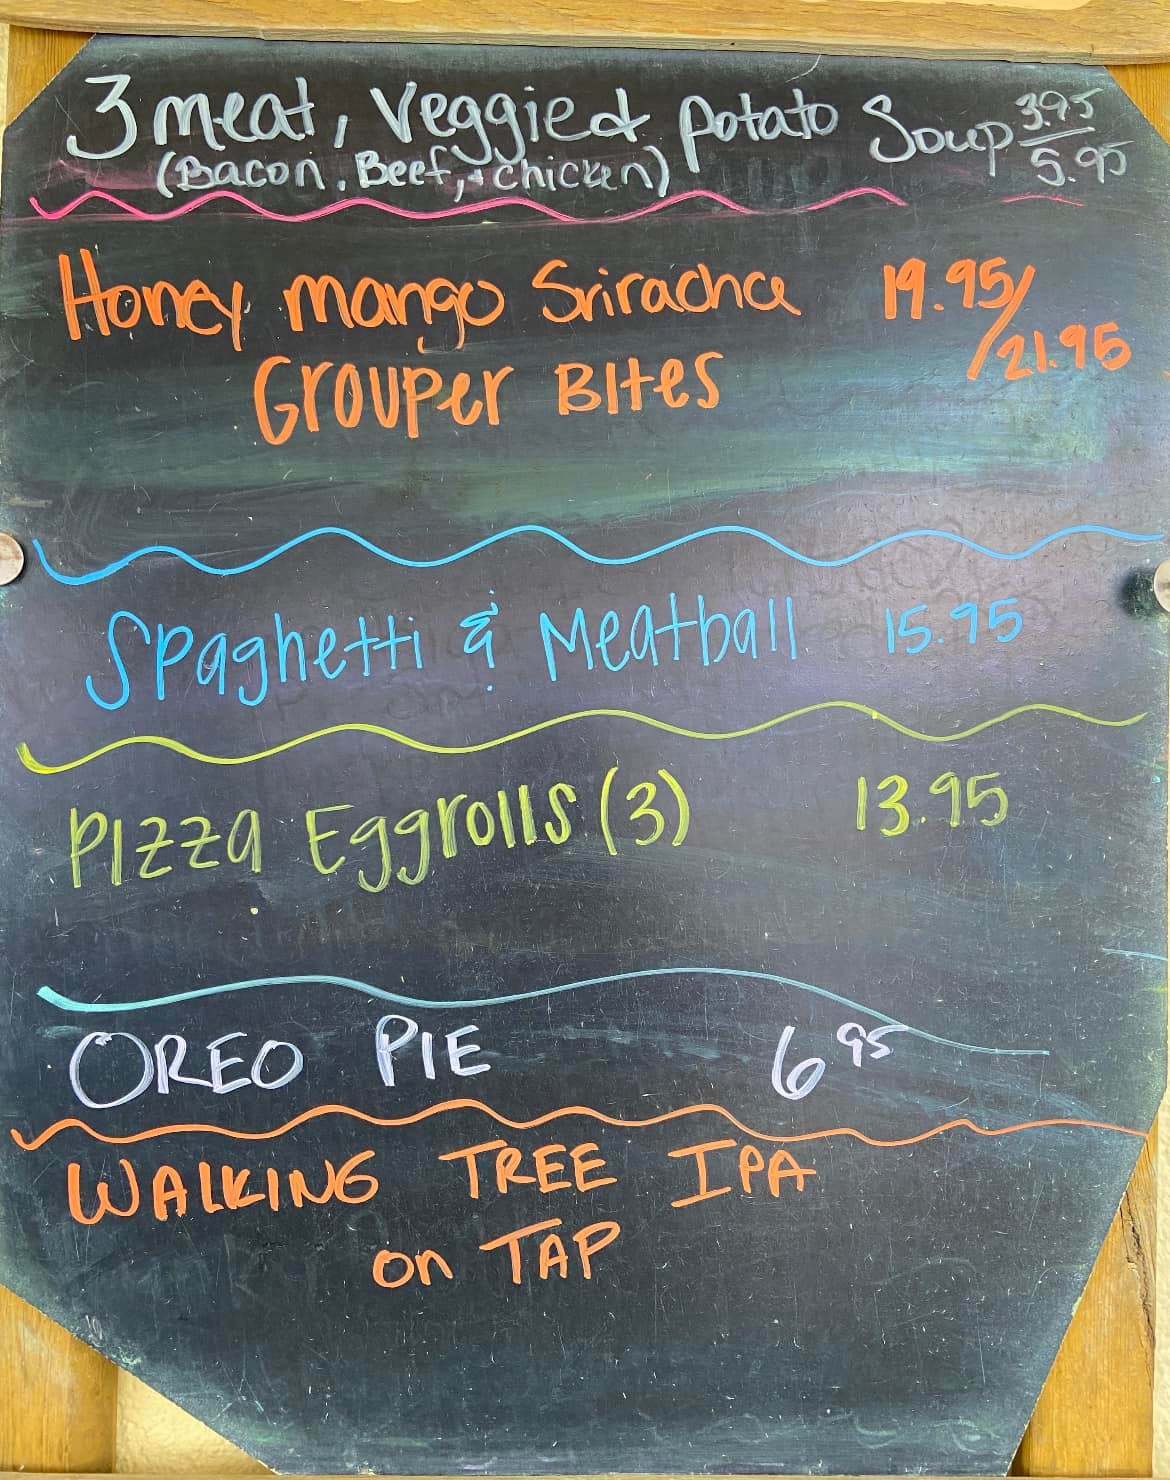 3 meat, Veggie & potato Soup 3.95
(Bacon, Beef, & chicken) 5.95
Honey mango Sriracha 19.95/
Grouper Bites /21.95
Spaghetti & Meatball 15.95
Pizza Eggrolls (3) 13.95
OREO PIE 6 95
WALKING TREE IPA
on TAP